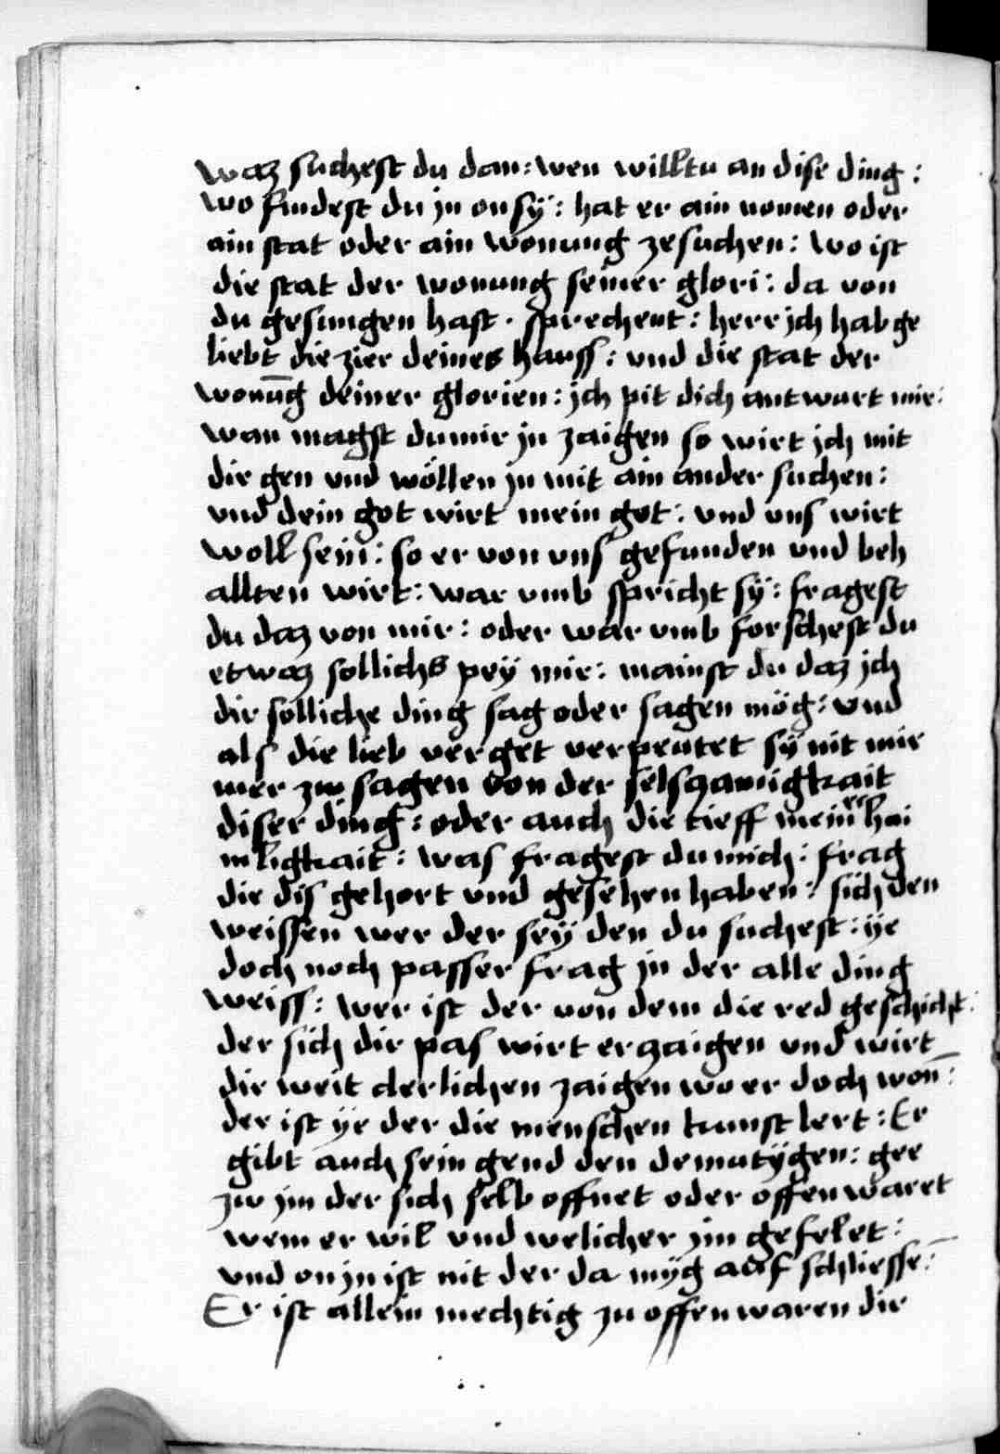 waz suchest du dan: wen willtu an dise ding:
wo findest du jn on sÿ: hat er ain nomen oder
ain stat oder ain wonung zesuchen: wo ist
die stat der wonung seiner glori: da von
du gesungen hast. sprechent: herr jch hab ge
liebt die zier deines hauss: und die stat der
wonūg deiner glorien: jch pit dich antwurt mir:
wan magst du mir jn zaigen so wirt jch mit
dir gen und wöllen jn mit ain ander suchen:
und dein got wirt mein got: und uns wirt
woll sein: so er von uns gefunden und beh
allten wirt: war umb spricht sÿ: fragest
du daz von mir: oder war umb forschest du
etwaz sollichs peÿ mir: mainst du daz jch
dir sölliche ding sag oder sagen mög: und
als die lieb verget verpeutet sÿ nit mir
mer zw sagen von der selszamigkait
diser ding: oder auch die tieff meiner hai
mligkait: was fragest du mich: frag
die dis gehort und gesehen haben: sich den
weissen wer der seÿ den du suchest: ÿe
doch noch passer frag jn der alle ding
weiss: wer ist der von dem die red geschicht:
der sich dir pas wirt erzaigen und wirt
dir weit clerlichen zaigen wo er doch won̄:
der ist ÿe der die menschen kunst lert: Er
gibt auch sein gend den demutÿgen: gee
zw jm der sich selb offnet oder offenwaret
wem er wil und welicher jm gefelet:
und on jn ist nit der da mÿg auf schliesse:
Er ist allein mechtig zu offenwaren die